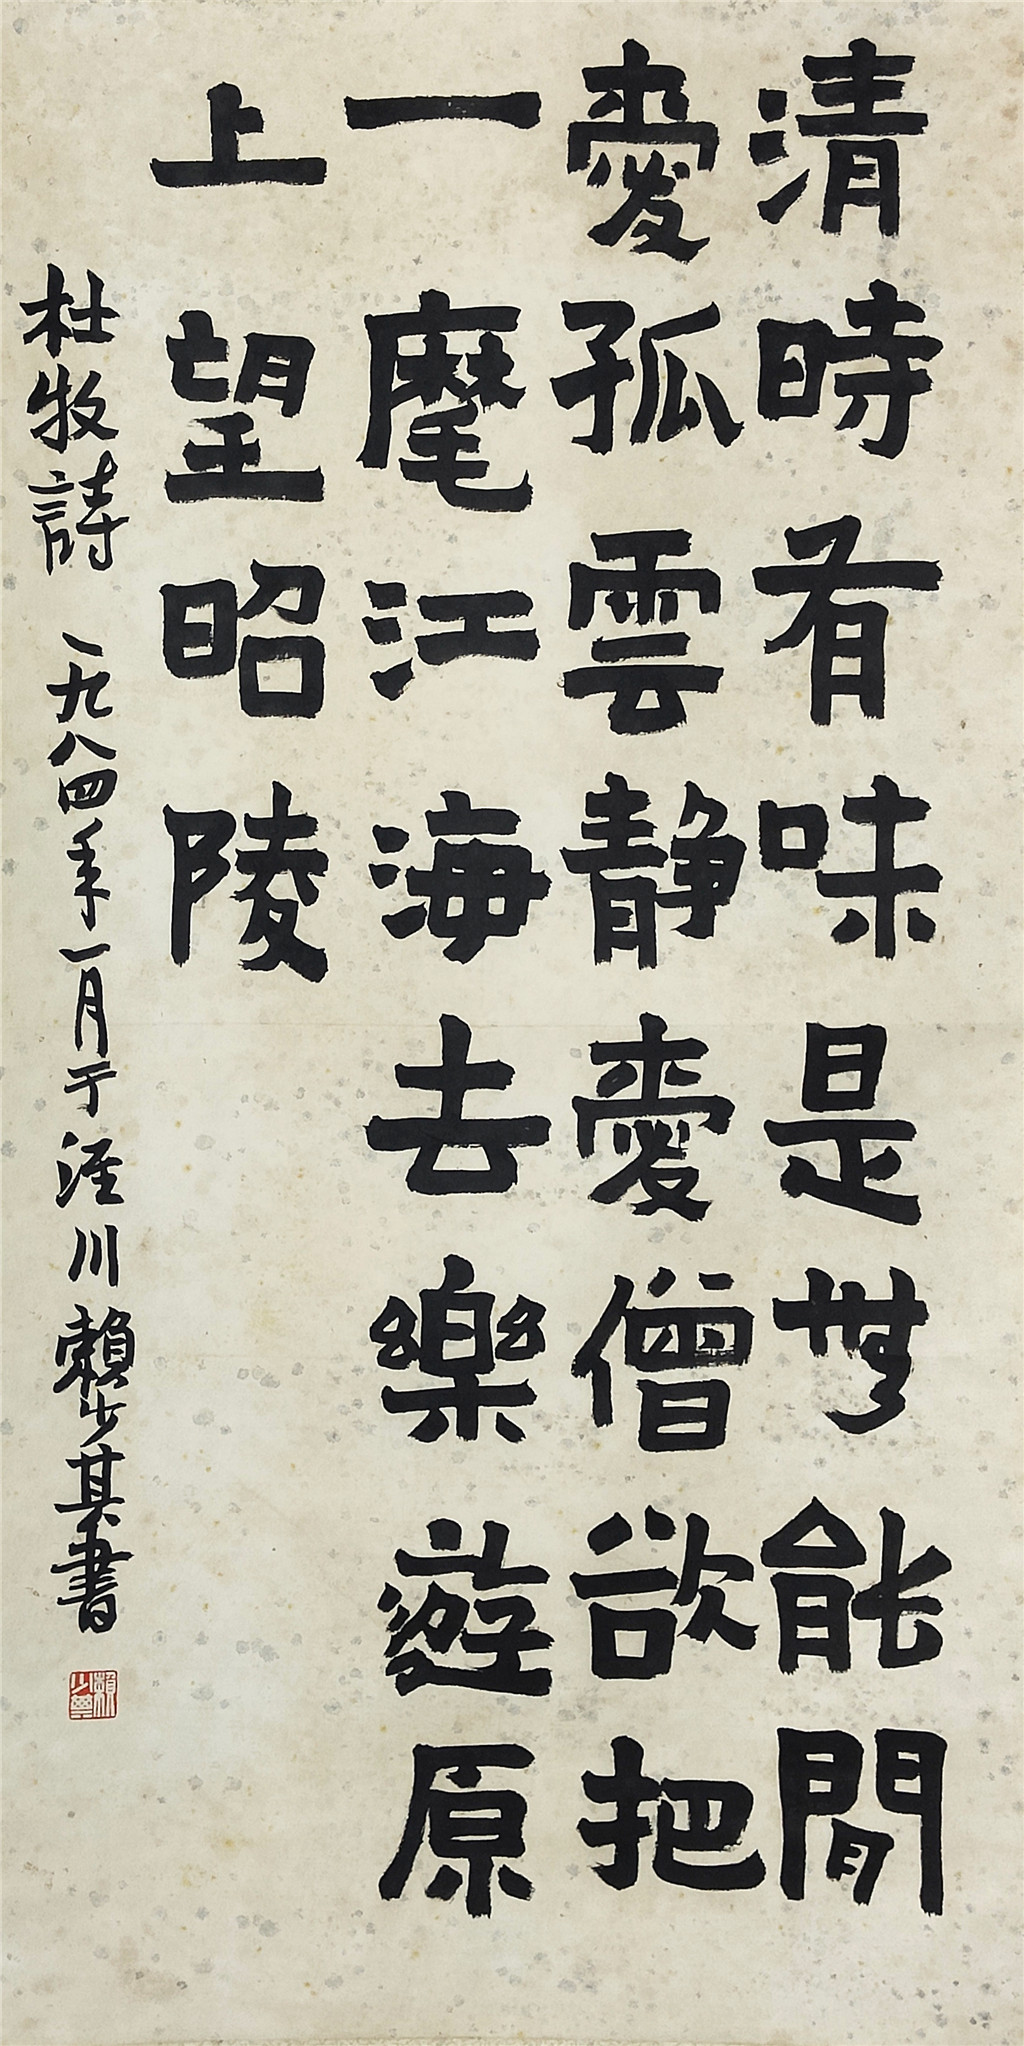 清時有味是無能閒
愛孤雲靜愛僧欲把
一麾江海去樂遊原
上望昭陵
杜牧詩 一九八四年一月于涇川賴少其書
賴少其